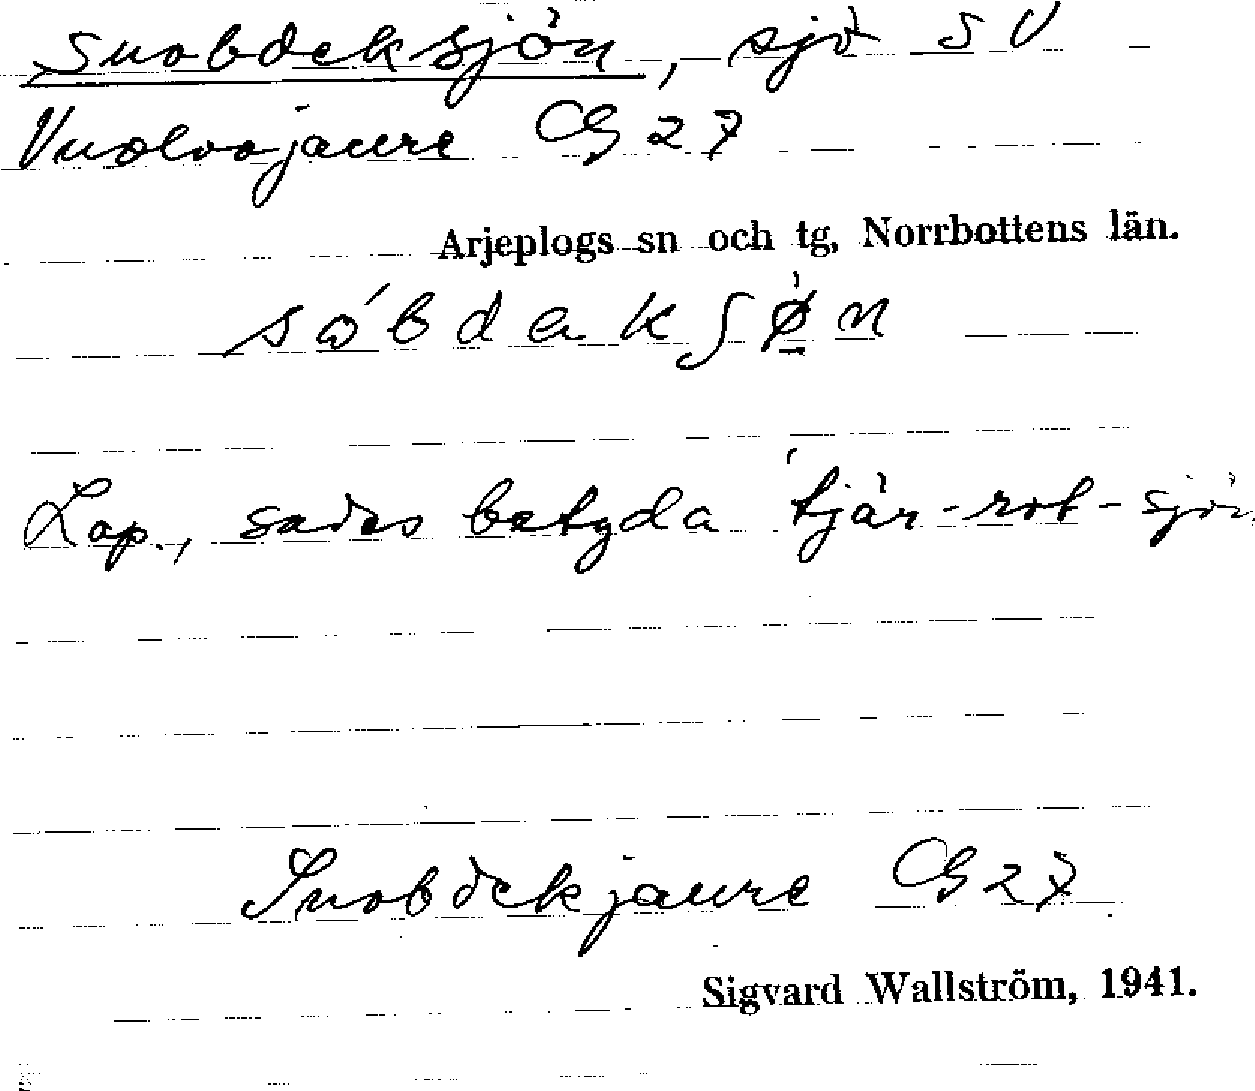 Suobdeksjön, sjö SV
Vuolvojaure GS 27
Arjeplogs sn och tg, Norrbottens län.
Lap., sades betyda 'tjär-rot-sjön
Suobdekjaure GS 27
Sigvard Wallström, 1941.